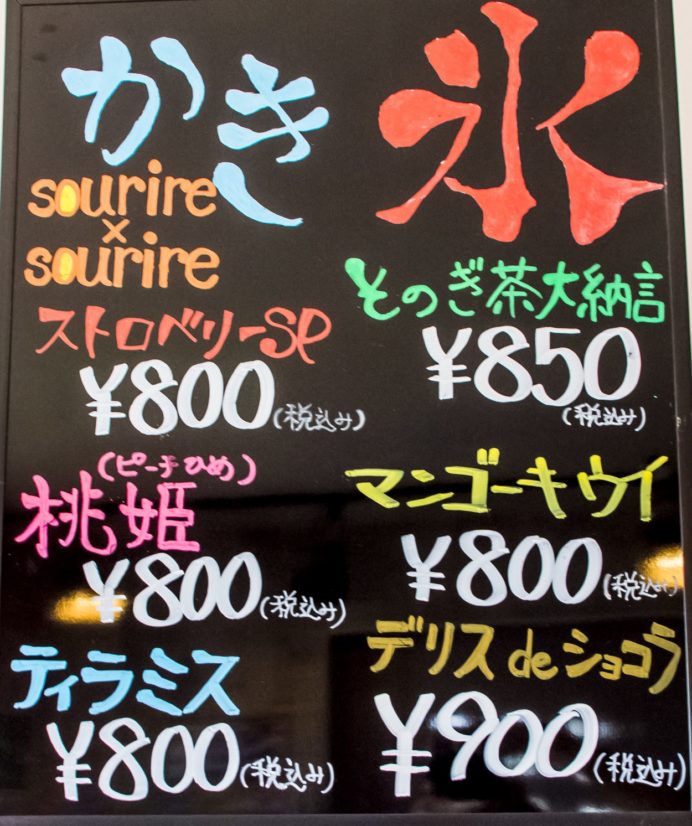 かき氷
sourire
×
sourire
そのぎ茶大納言
¥850
(税込み)
ストロベリーSP
¥800(税込み)
(ピーチひめ)
桃姫
¥800(税込み)
マンゴーキウイ
¥800(税込み)
ティラミス
¥800(税込み)
デリスdeショコラ
¥900(税込み)